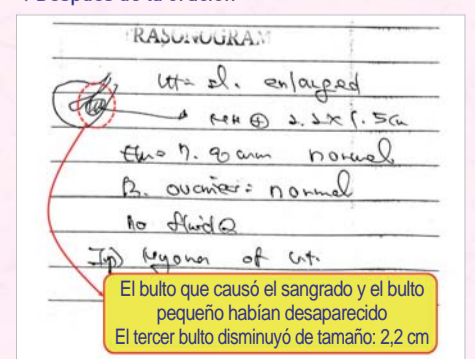 Después de la oración
RASONOGRAM
Ut- sl. enlarged
⊕ 2.2x1.5cm
normal
B. ovaries: normal
No fluid
Imp) Myoma of Ut.
El bulto que causó el sangrado y el bulto
pequeño habían desaparecido
El tercer bulto disminuyó de tamaño: 2,2 cm